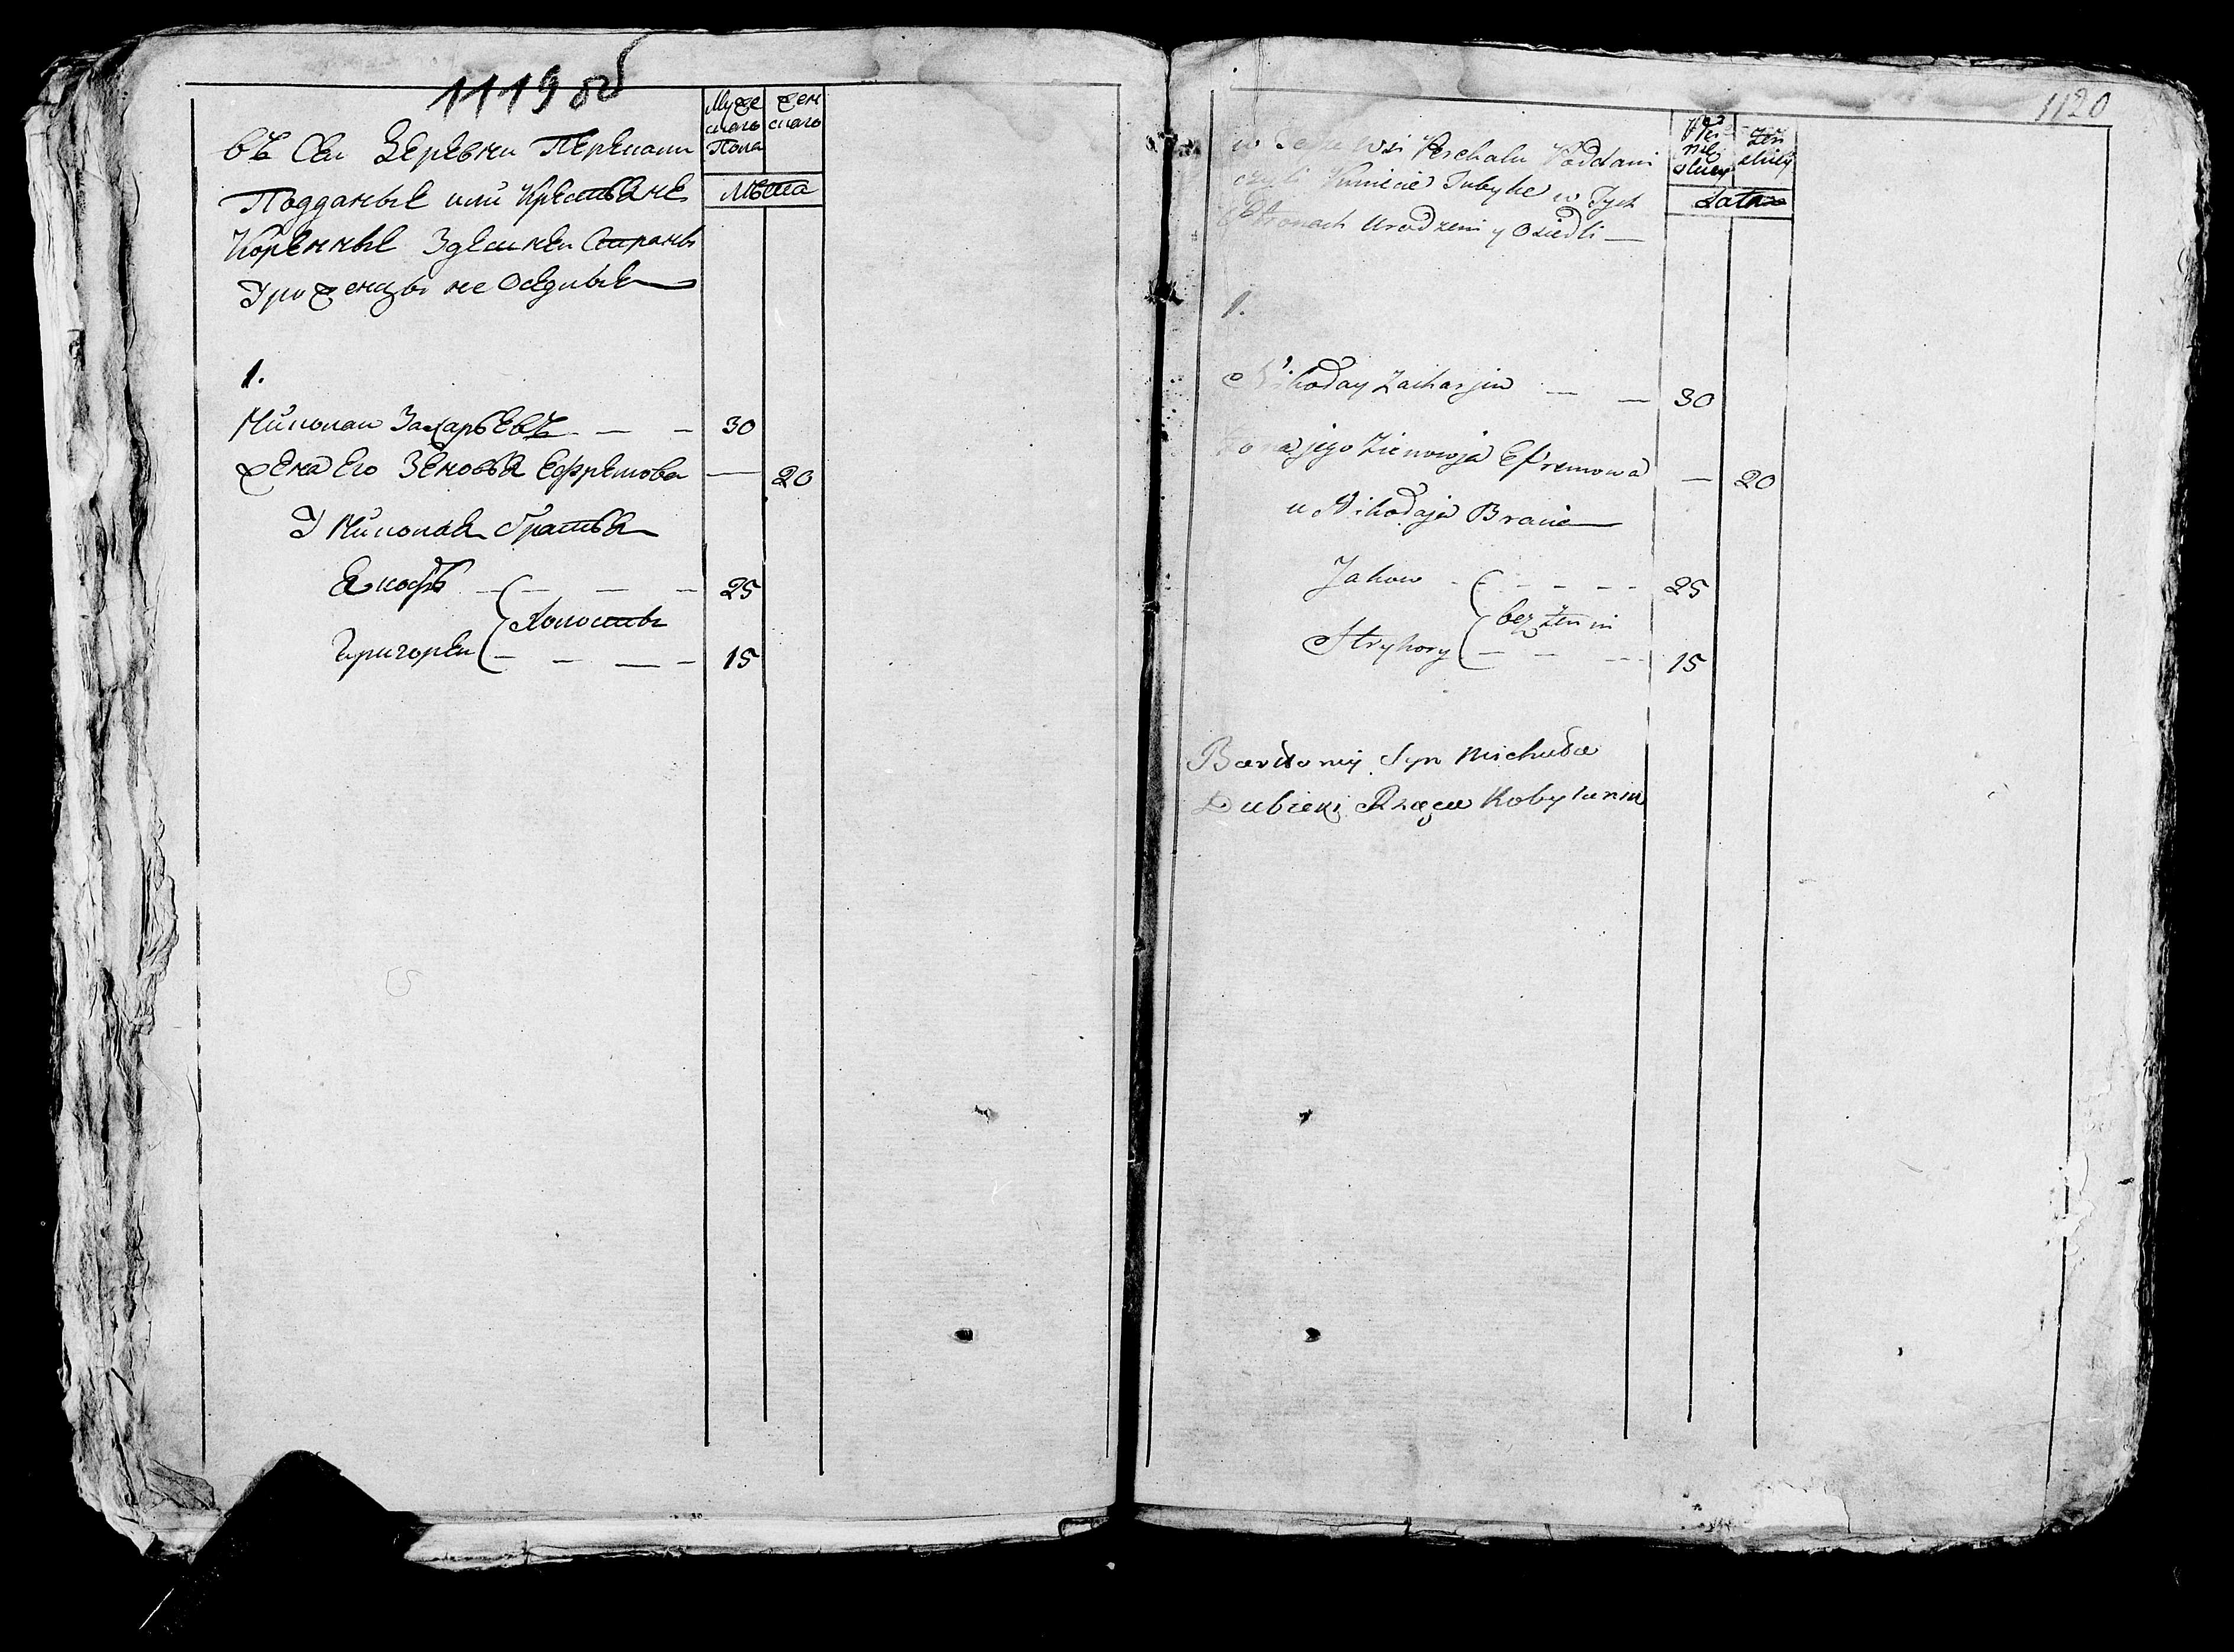 1119 об
Муже
скаго
Пола
жен
скаго
Лѣта
въ Сей Деревни Перекали
Подданые или Крестьяне
Коренные Здешней Стораны
Уроженцы не Оседлые
1.
Николай Захарьевъ — — — 30
жена Его Зеновья Ефремова — 20
У Николая братья
Яковъ — — — 25
холосты
Григорей — — — — 15
1120
Męz
kiej
płciey
żeń
skiey
Lata
w Teyże wsi Perchalu Poddani
czyli Kmiecie Tubylce w Tych
Stronach Urodzeni y Osiedli —
1.
Nikołay Zacharjew — — 30
Żona jego Zienowja Efremowa — 20
u Nikołaja Bracia
Jakow — — — — — 25
bez żenni
Hryhory — — — 15
Bartłomiy Syn Michała
Dubicki Rządca Kobylanski